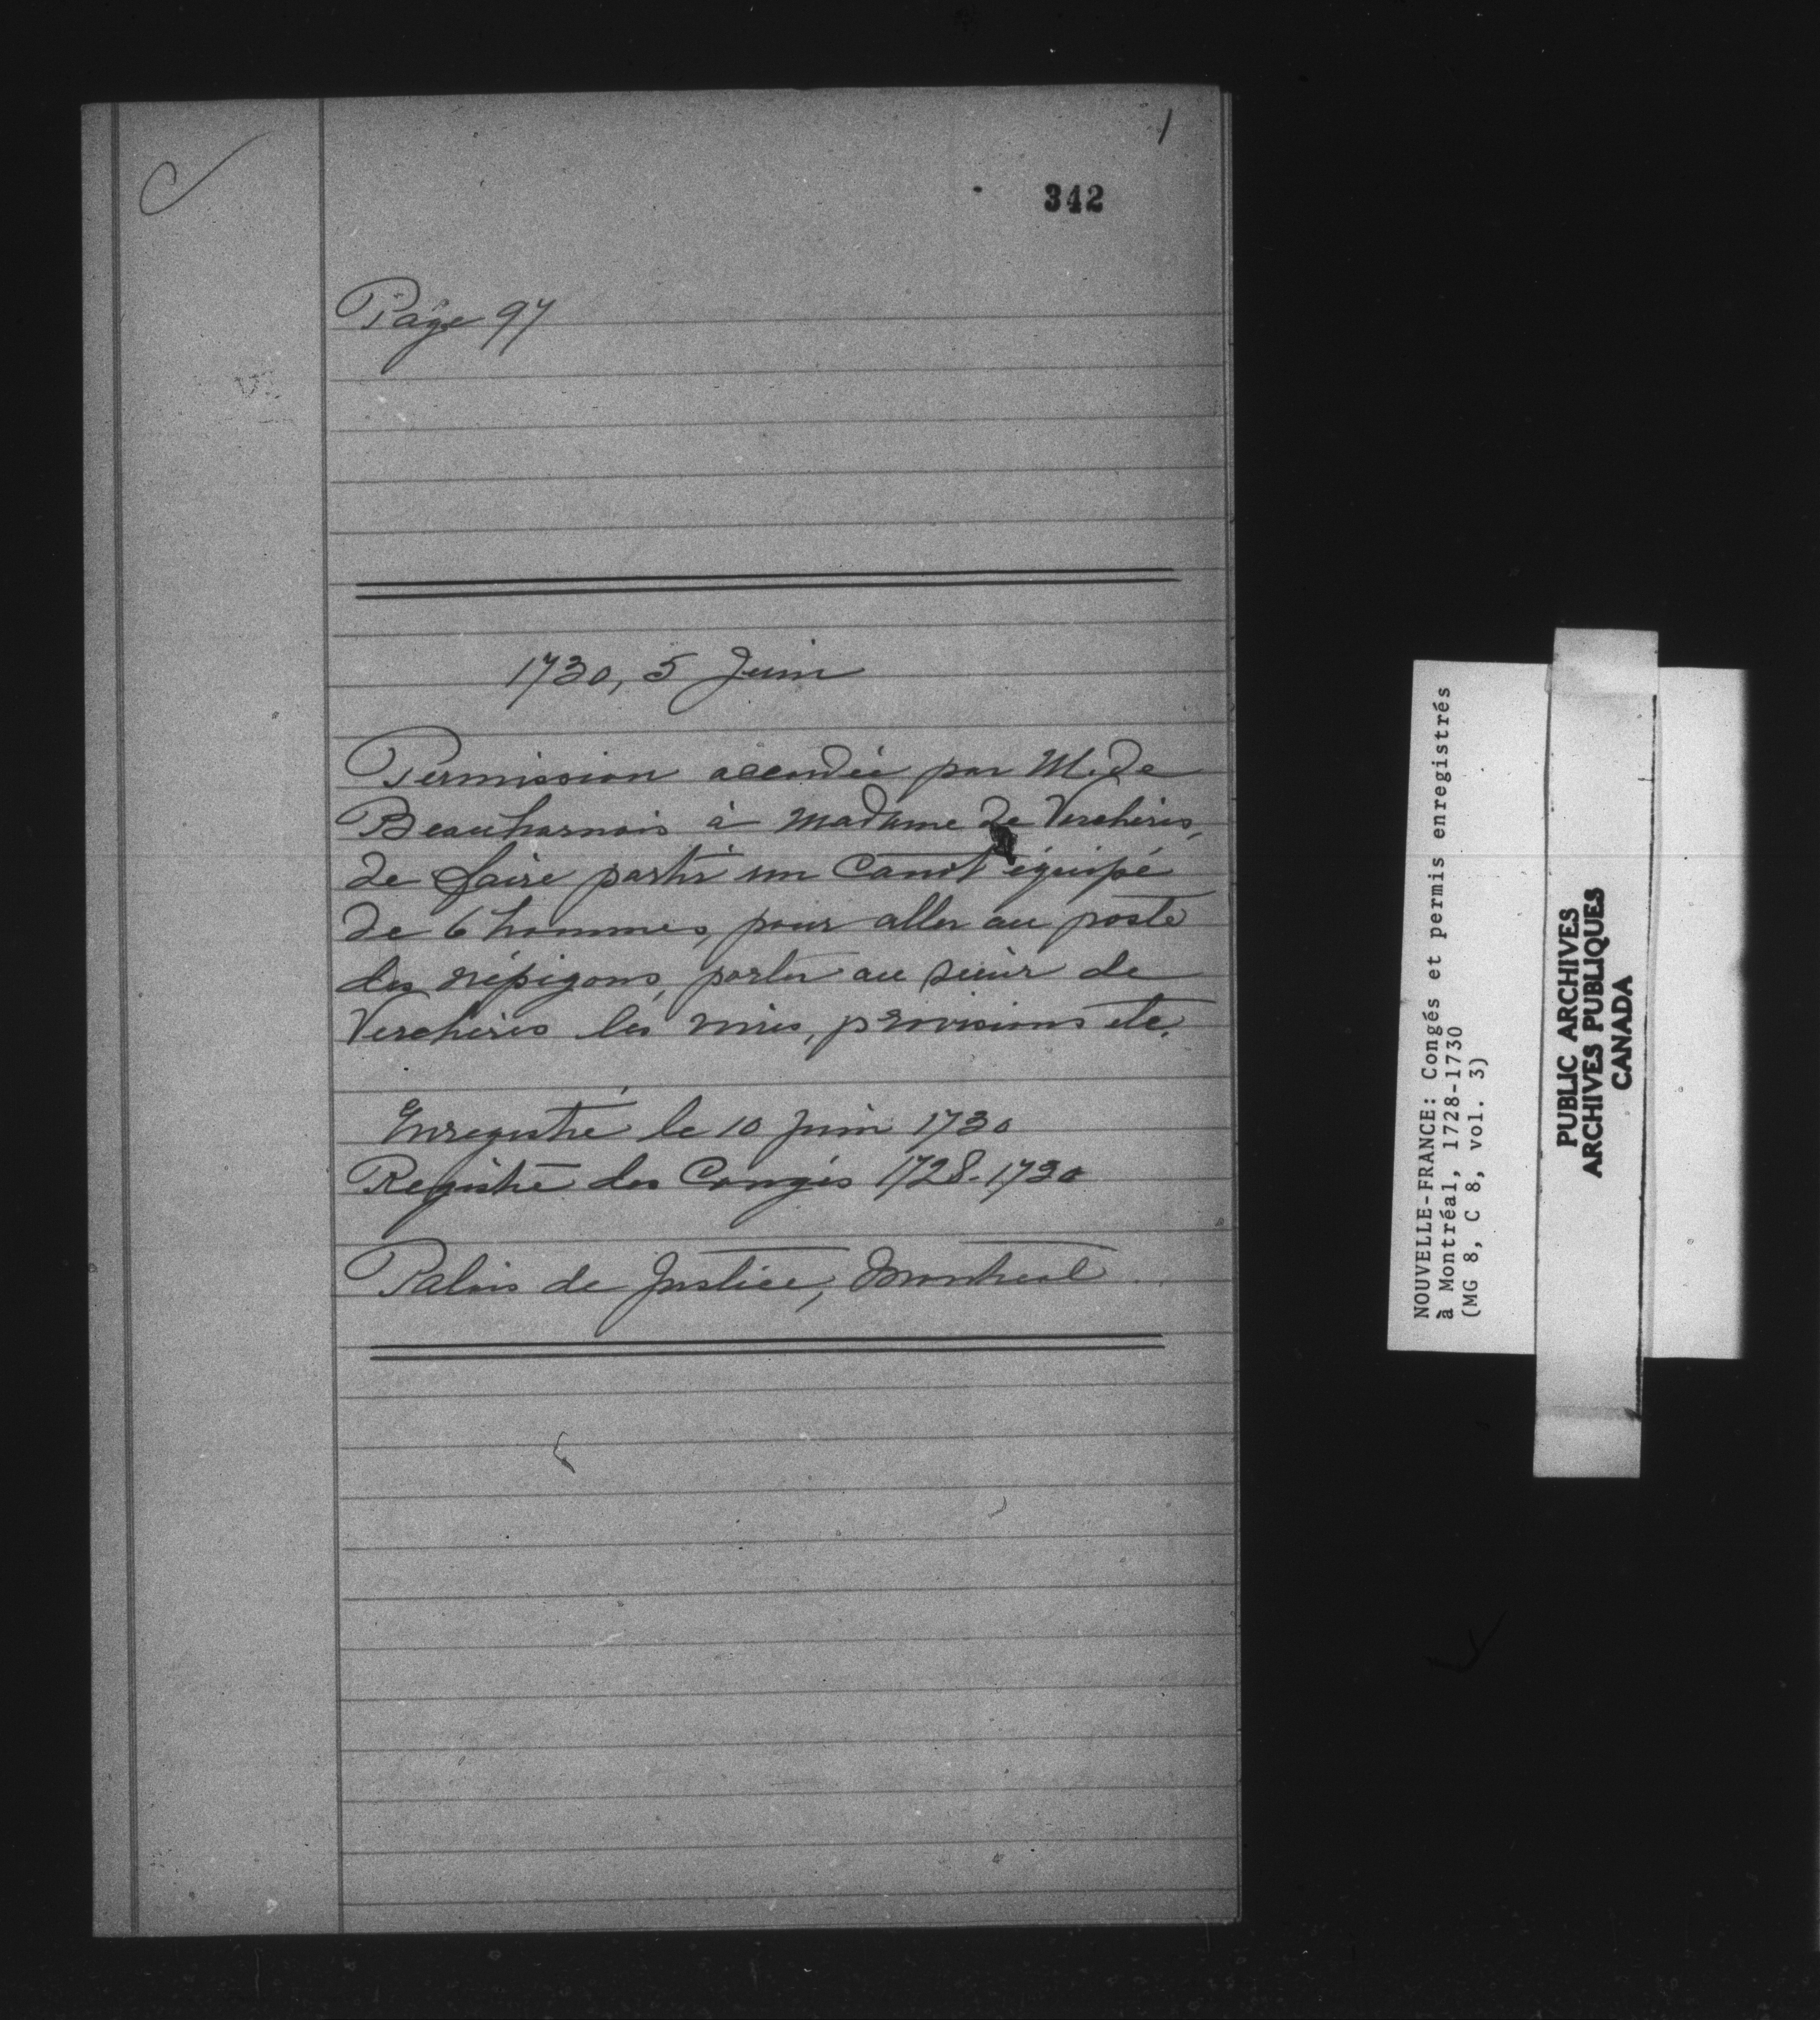 1
342
Page 97
1730, 5 Juin
Permission accordée par M. de
Beauharnois à Madame de Verchères,
de faire partir un Canot équipé
de 6 hommes, pour aller au poste
des népigons, porter au sieur de
Verchères les vivres, provisions etc.
Enregistré le 10 Juin 1730
Registre des Congés 1728-1730
Palais de Justice, Montreal
NOUVELLE-FRANCE: Congés et permis enregistrés
à Montréal, 1728-1730
(MG 8, C 8, vol. 3)
PUBLIC ARCHIVES
ARCHIVES PUBLIQUES
CANADA